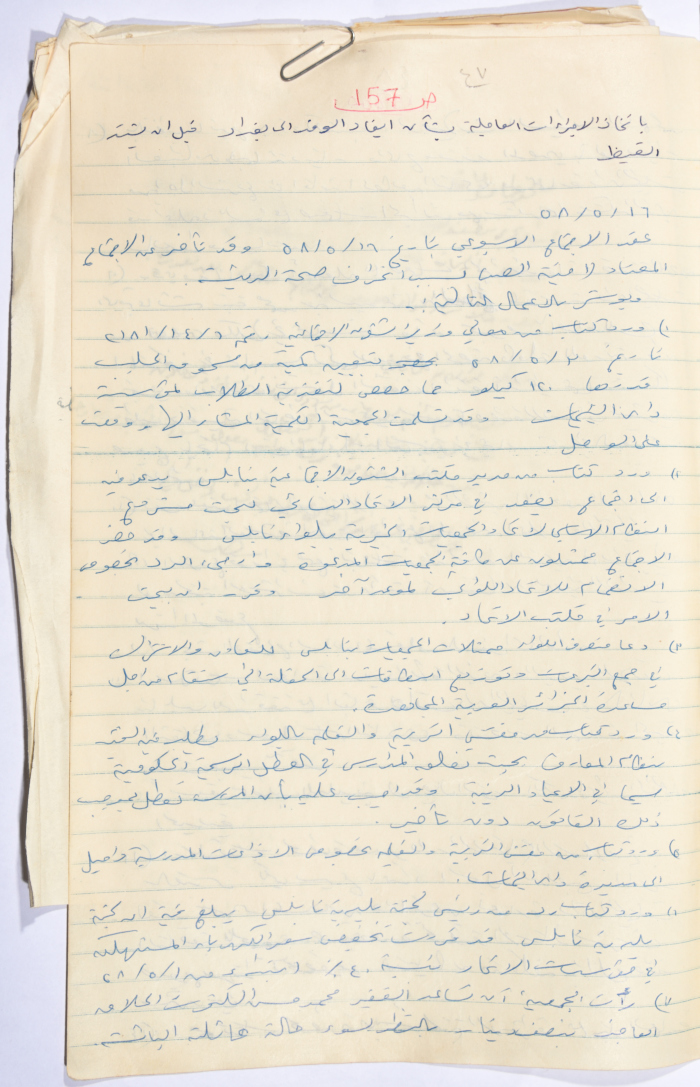 ٤٧
ص 157
باتخاذ الاجراءات العاجلة بشأن ايفاد الوفد الى بغداد قبل ان يشتد
القيظ
٥٨/٥/١٦
عقد الاجتماع الاسبوعي بتاريخ ٥٨/٥/١٦ وقد تأخر عن الاجتماع
المعتاد لامنية الصبا بسبب انحراف صحة الريسة.
وبوشر بالاعمال التالية:.
١) ورد كتاب من معالي وزير الشئون الاجتماعية رقم ٢١٨١/١٤/٦
تاريخ ٥٨/٥/٣ بتعيين كمية من مسحوق الحليب
قدرها ١٢٠ كيلو مما خصص لتغذية الطلاب لمؤسسة
دار اليتيمات وقد تسلمت الجمعية الكمية المشار اليها ووقعت
على الوصل.
٢) ورد كتاب من مدير مكتب الشئون الاجتماعية بنابلس يدعو فيه
الى اجتماع يعقد في مركز الاتحاد النسائي لبحث مشروع
النظام الاساسي لاتحاد الجمعيات الخيرية بلواء نابلس وقد حضر
الاجتماع ممثلون عن كافة الجمعيات المدعوة وارجيء الرد بخصوص
الانضمام للاتحاد اللوائي لموعد آخر وتقرر ان يبحث
الامر في مكتب الاتحاد.
٣) دعا متصرف اللواء ممثلات الجمعيات بنابلس للتعاون والاشتراك
في جمع التبرعات وتوزيع البطاقات الى الحفلة التي ستقام من اجل
مساعدة الجزائر العربية المجاهدة.
٤) ورد كتاب من مفتش التربية والتعليم باللواء يطلب فيه التقيد
بنظام المعارف بحيث تعطل المدارس في العطل الرسمية الحكومية
سيما في الاعياد الدينية وقد اجيب عليه بأن المدرسة تعطل بموجب
ذلك القانون دون تأخير.
٥) ورد كتاب من مفتش التربية والتعليم بخصوص الاذاعات المدرسية واحيل
الى مديرة دار اليتيمات.
٦) ورد كتاب رد من رئيس لجنة بلدية نابلس يبلغ فيه ان لجنة
بلدية نابلس قد قررت تخفيض سعر الكهرباء المستهلكة
في مؤسسات الاتحاد بنسبة ٤٠٪ ابتداء من ٥٨/٥/١
٧) رأت الجمعية ان تساعد الفقير محمد حسن الحلاق
العاجز بنصف دينار بالنظر لسوء حالة عائلته البائسة.